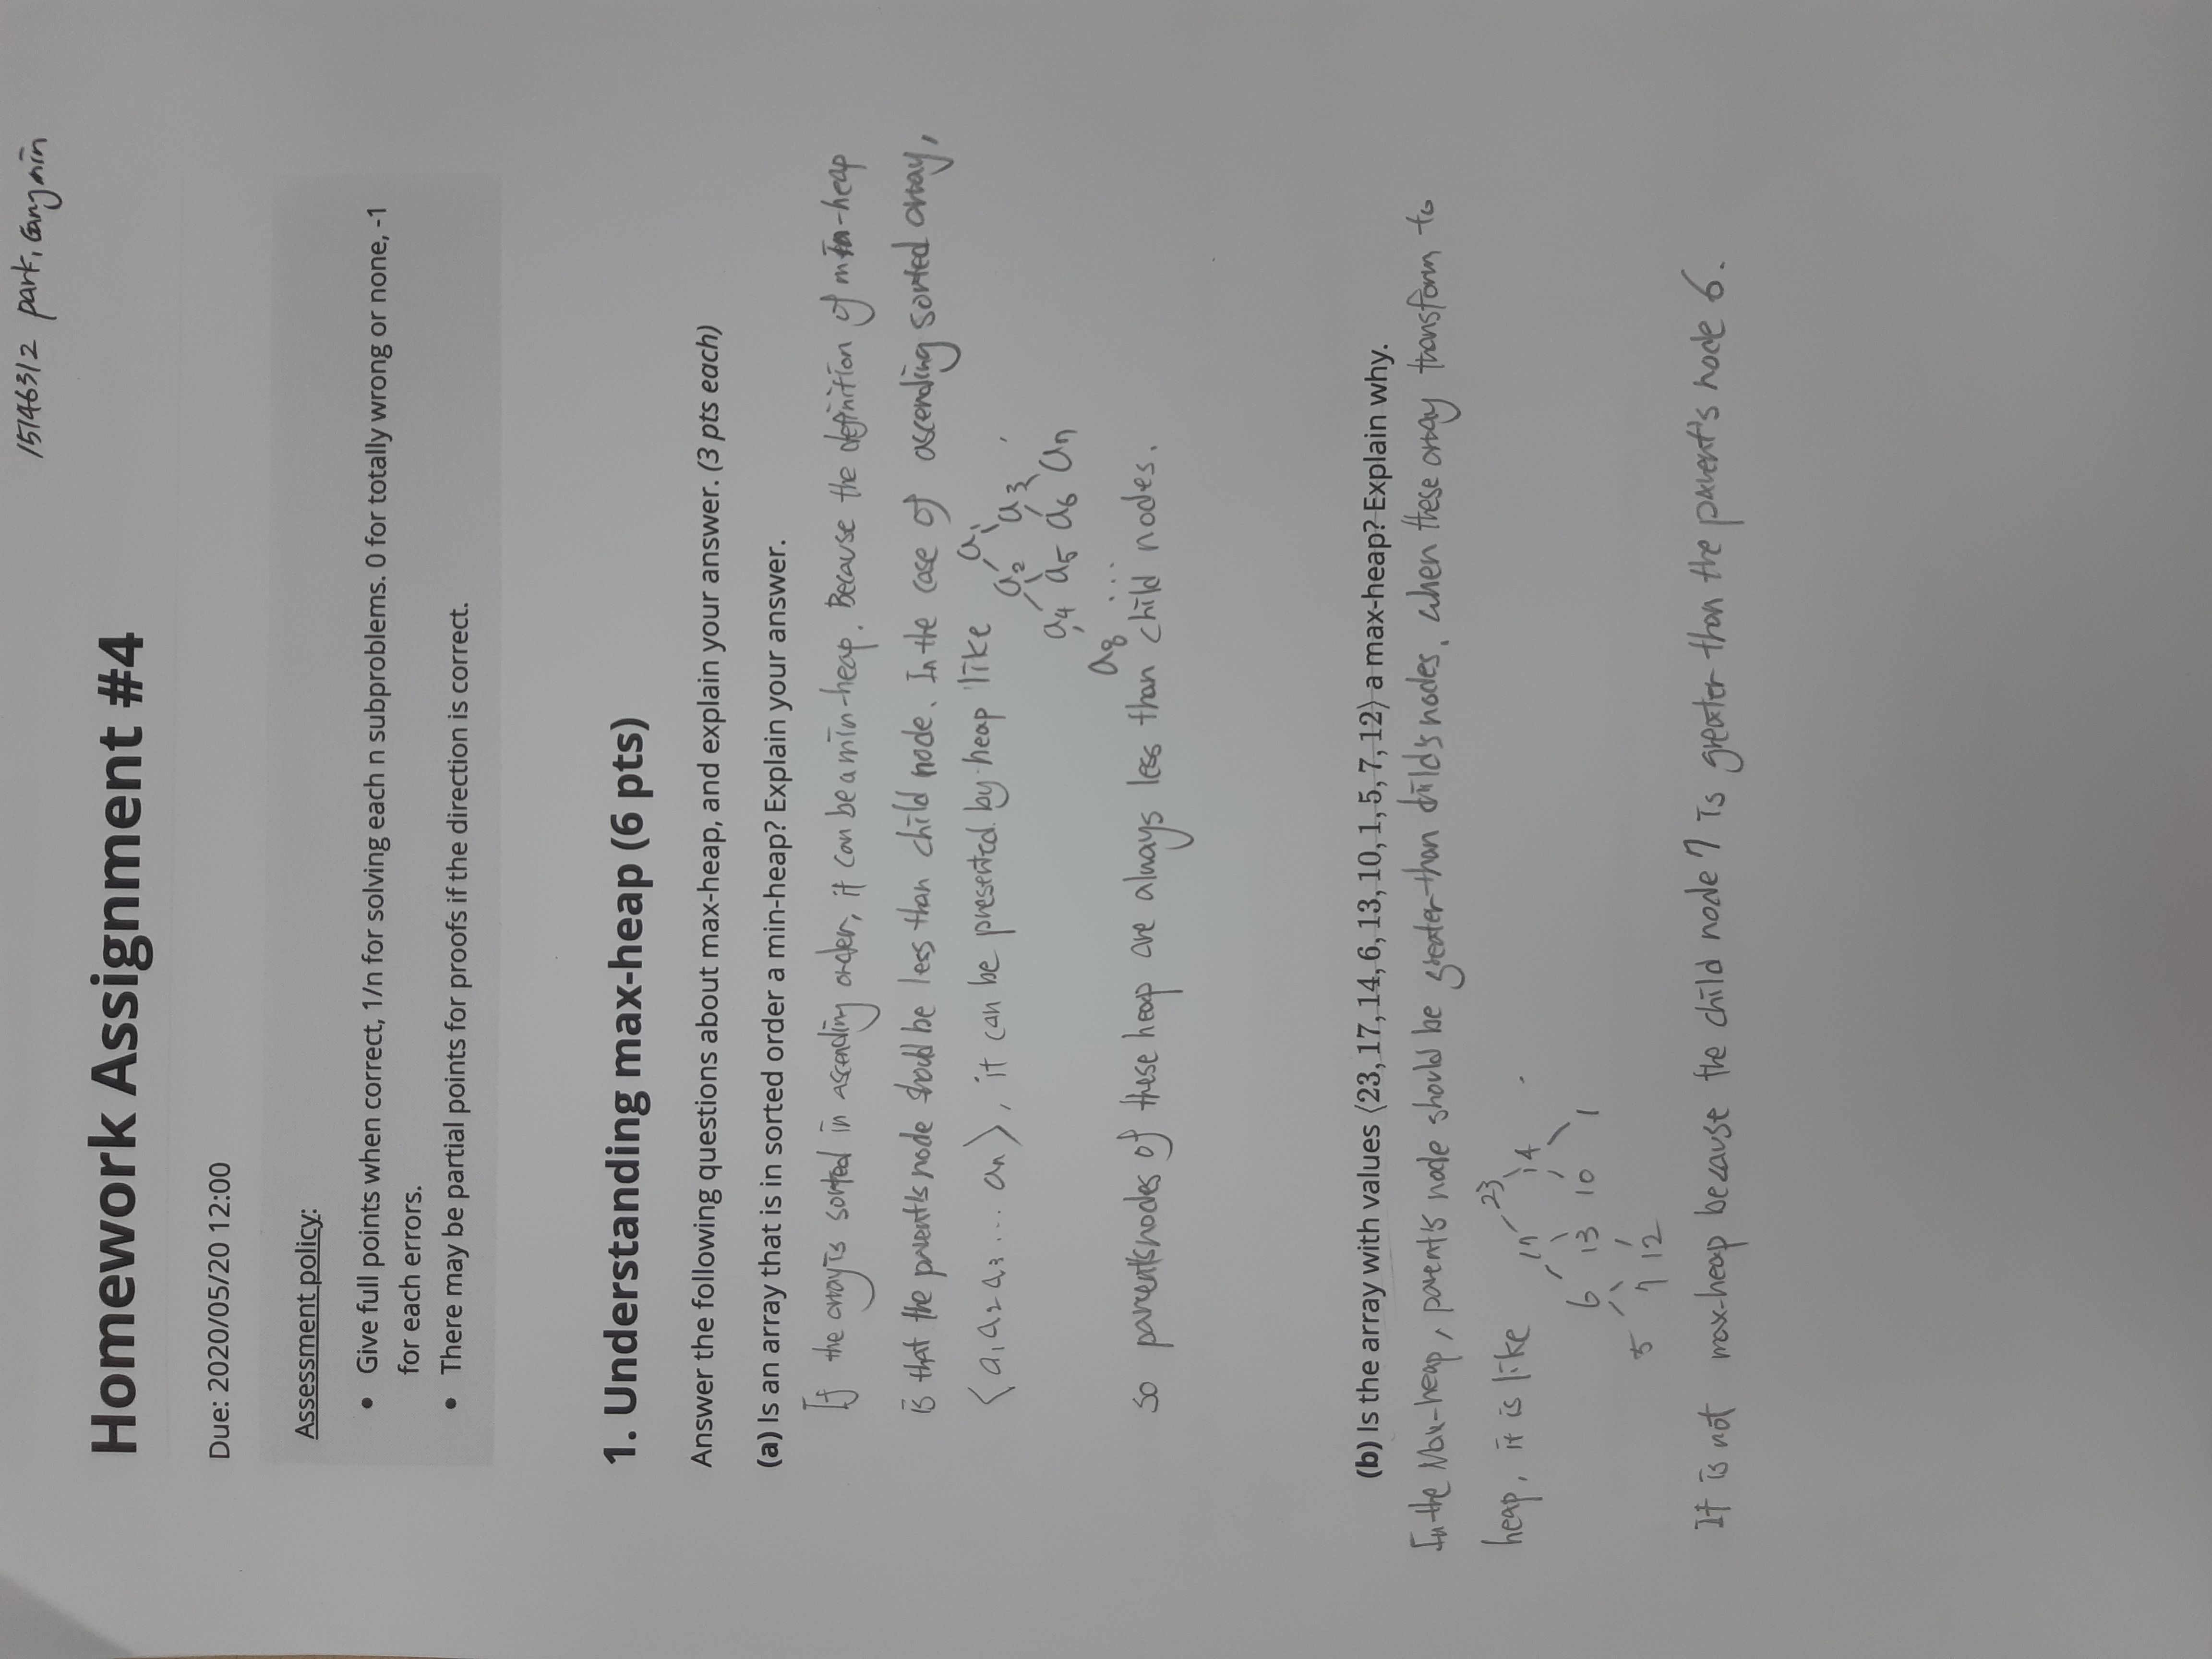 15146312 park, Gangmin
Homework Assignment #4
Due: 2020/05/20 12:00
Assessment policy:
• Give full points when correct, 1/n for solving each n subproblems. 0 for totally wrong or none, -1
for each errors.
• There may be partial points for proofs if the direction is correct.
1. Understanding max-heap (6 pts)
Answer the following questions about max-heap, and explain your answer. (3 pts each)
(a) Is an array that is in sorted order a min-heap? Explain your answer.
If the array is sorted in ascending order, it can be a min-heap. Because the definition of min-heap
is that the parent's node should be less than child node. In the case of ascending sorted array,
⟨a₁ a₂ a₃ ... aₙ⟩, it can be presented by heap like
a₁
a₂ a₃
a₄ a₅ a₆ a₇
a₈ ...
so parent's nodes of these heap are always less than child nodes.
(b) Is the array with values ⟨23, 17, 14, 6, 13, 10, 1, 5, 7, 12⟩ a max-heap? Explain why.
In the Max-heap, parent's node should be greater than child's nodes. when these array transform to
heap, it is like
23
17 14
6 13 10 1
5 7 12
It is not max-heap because the child node 7 is greater than the parent's node 6.